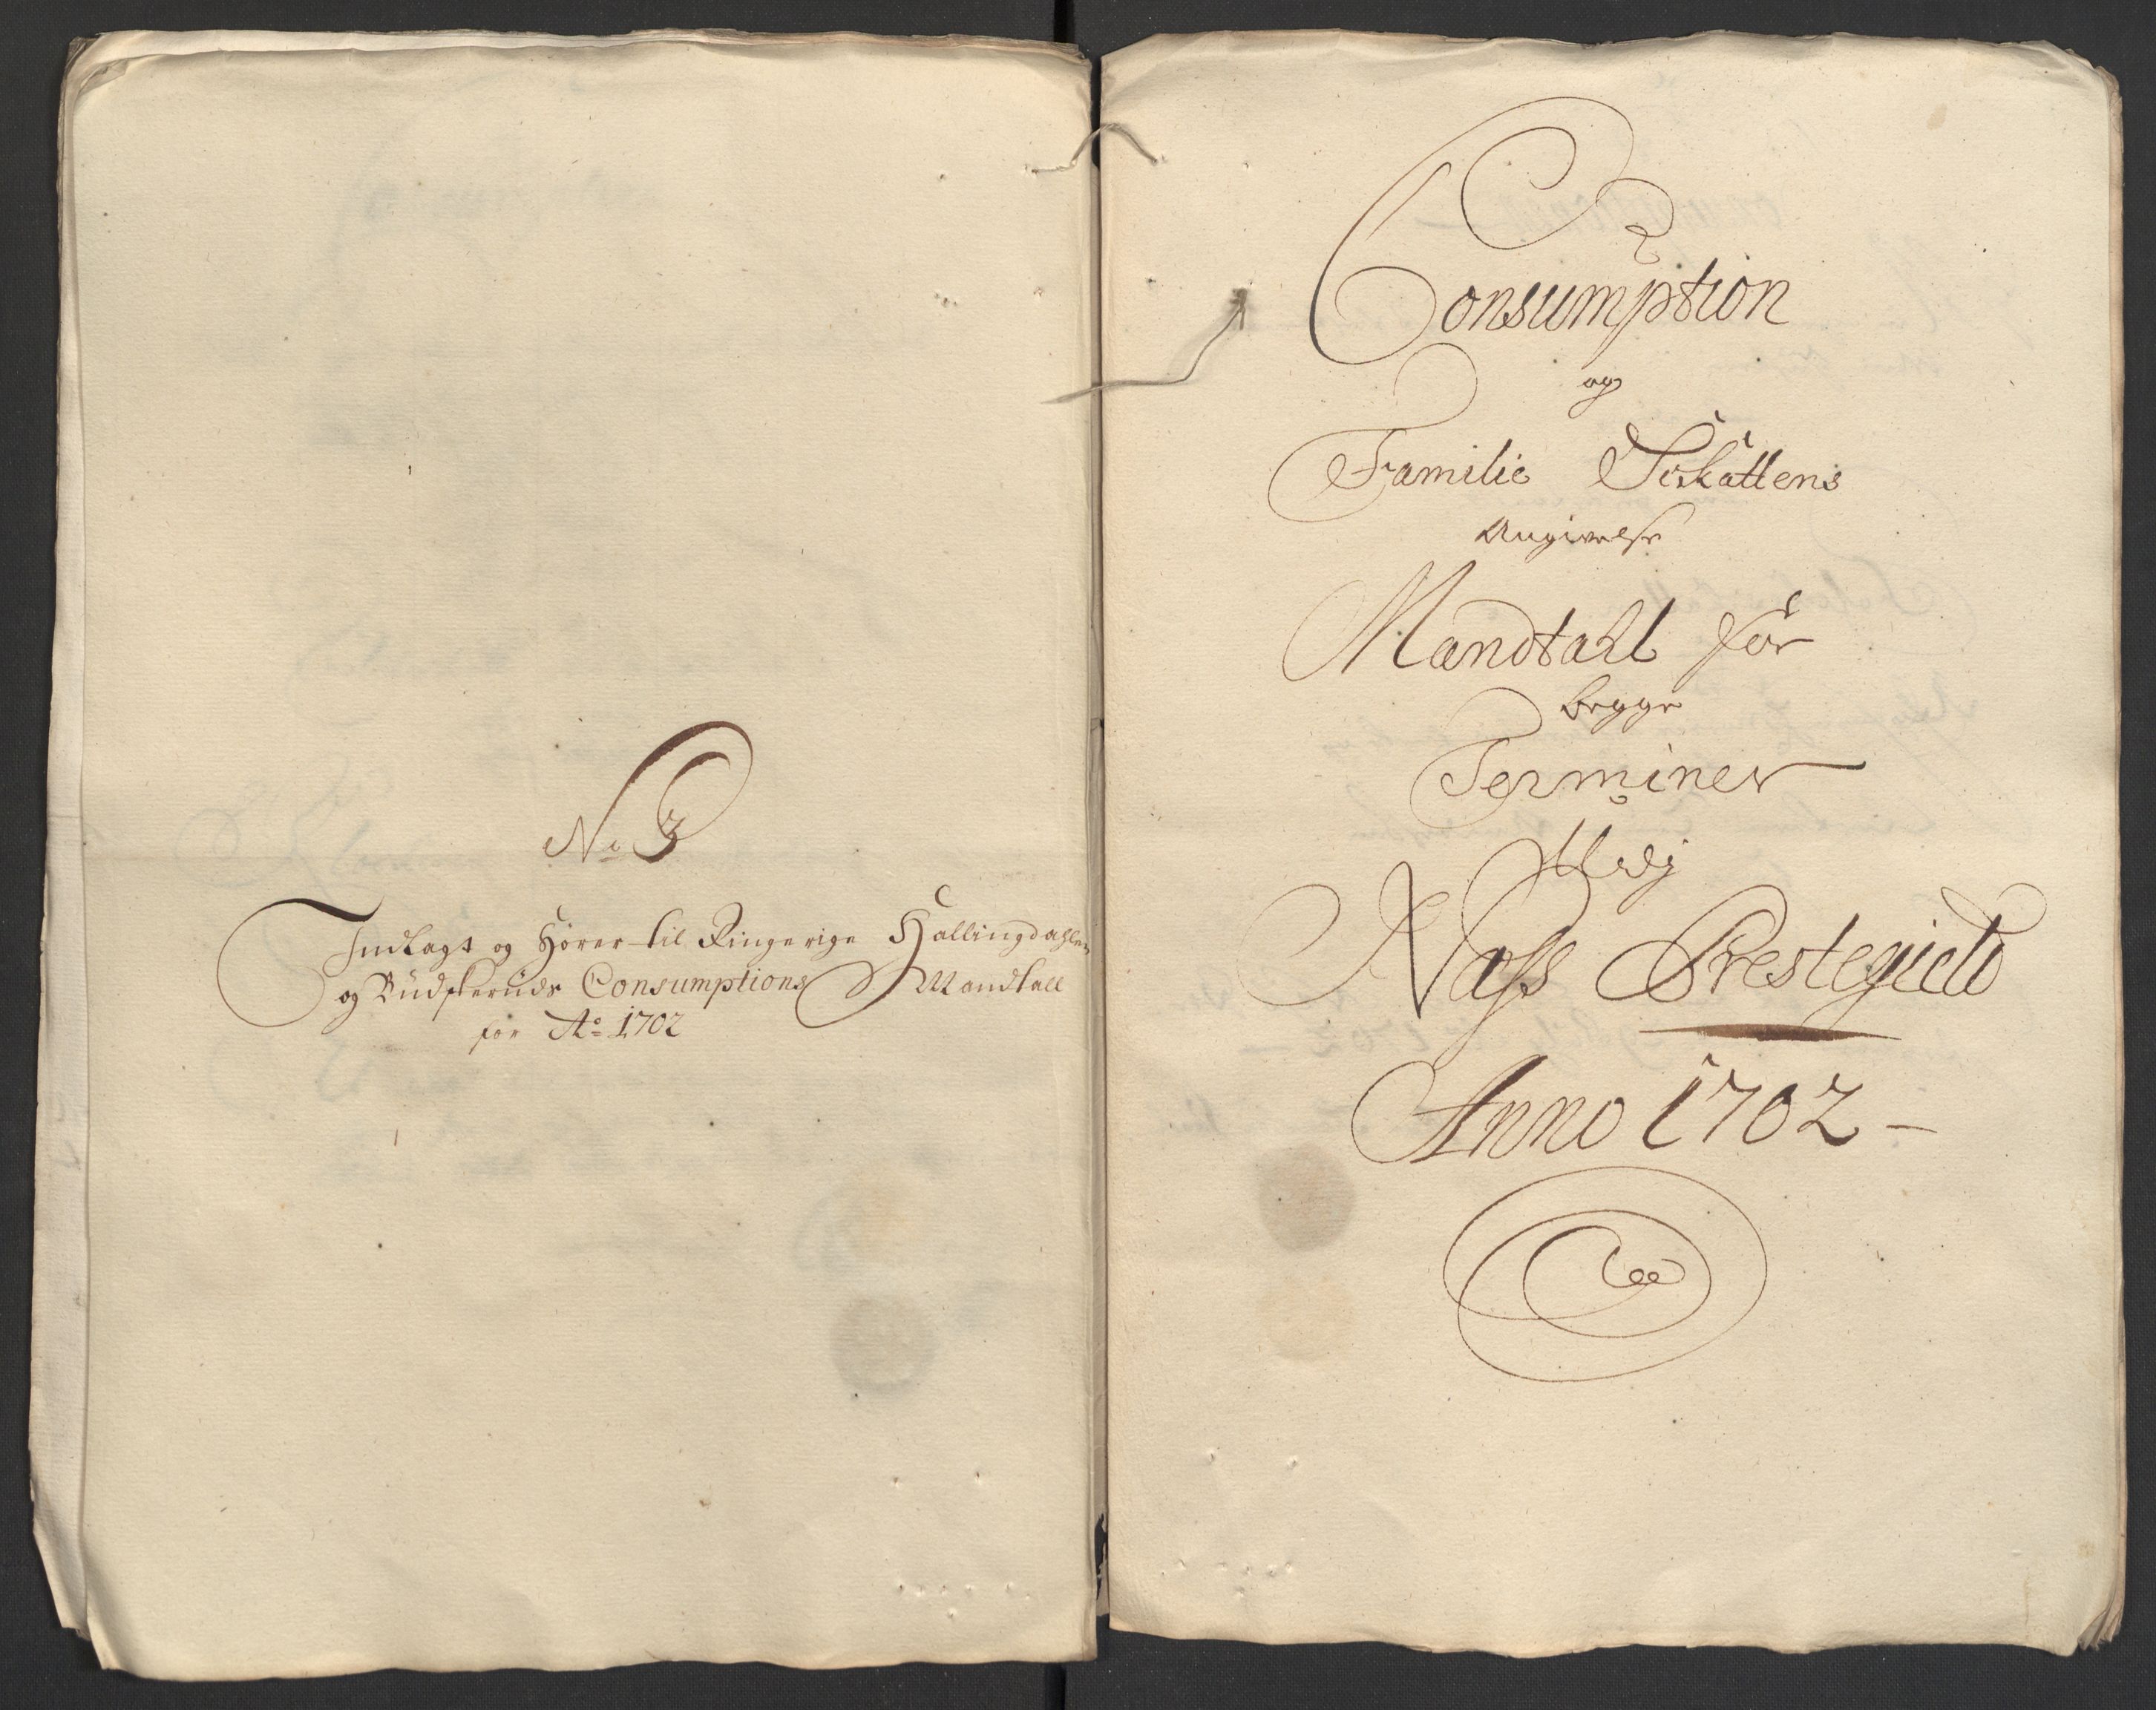 No 3
Indlagt og Hörer til Ringerige Hallingdahlen
og Budskeruds Consumptions Mandtall
for Ao 1702
Consumption
og
Familie Schattens
Angivelse
Mandtahl for
begge
Terminer
Udj
Næss Prestegield
Anno 1702 -